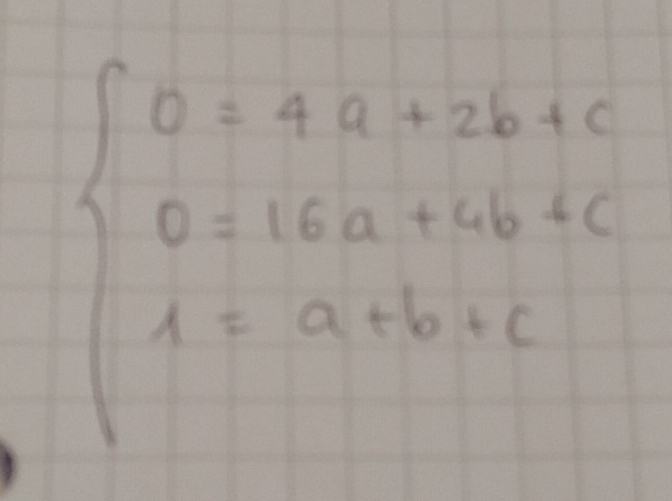 0 = 4a + 2b + c
0 = 16a + 4b + c
1 = a + b + c